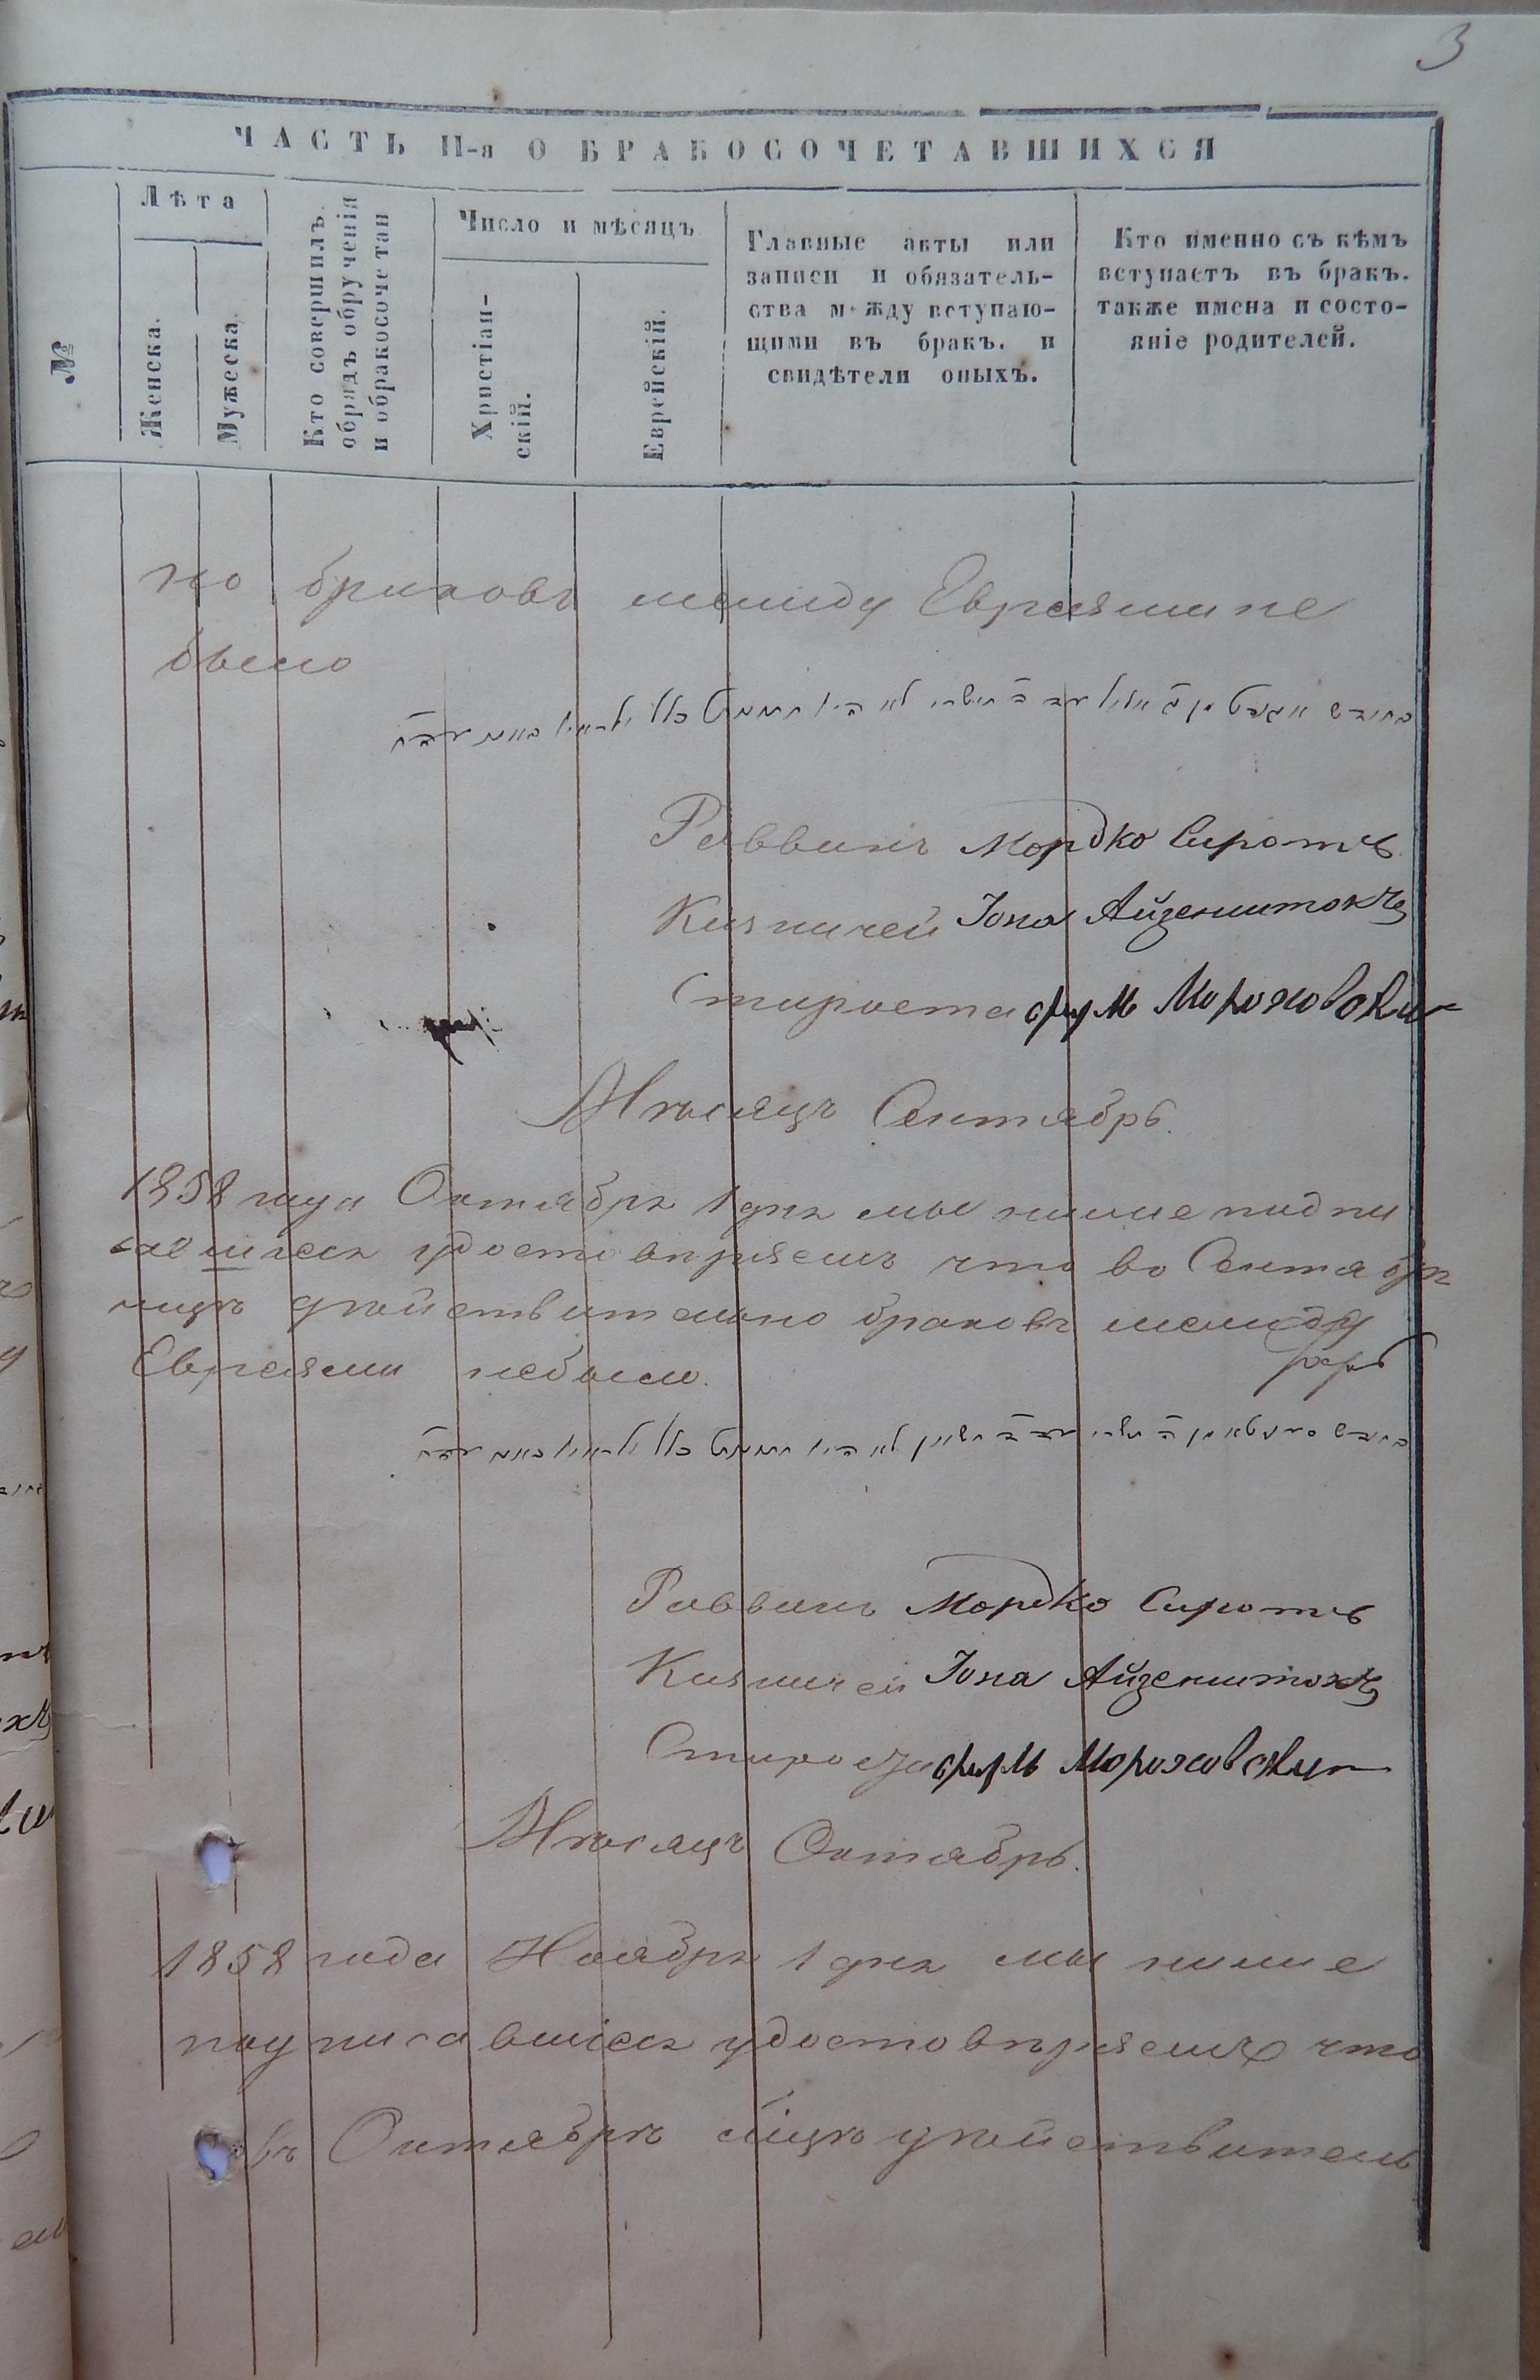 3
ЧАСТЬ II-я О БРАКОСОЧЕТАВШИХСЯ
№
Лѣта
Женска.
Мужеска.
Кто совершилъ
обрядъ обрученія
и обракосочетан
Число и мѣсяцъ
Христіан-
скій.
Еврейскій.
Главные акты или
записи и обязатель-
ства между вступаю-
щими въ бракъ. и
свидѣтели оныхъ.
Кто именно съ кѣмъ
вступаетъ въ бракъ.
также имена и состо-
яніе родителей.
но браковъ между Евреями не
было
Раввинъ Мордко Сирота
Казначей Іона Айзенштокъ
Староста Мороховски
Мѣсяцъ Сентябрь.
1858 года Октября 1 дня мы ниже подпи
савшіеся удостовѣряемъ что во Сентябрѣ
мцѣ дѣйствительно браковъ между
Евреями небыло.
Раввинъ Мордко Сирота
Казначей Іона Айзенштокъ
Староста Мороховски
Мѣсяцъ Октябрь.
1858 года Ноября 1 дня мы ниже
подписавшіеся удостовѣряемъ что
въ Октябрѣ мцѣ дѣйствитель